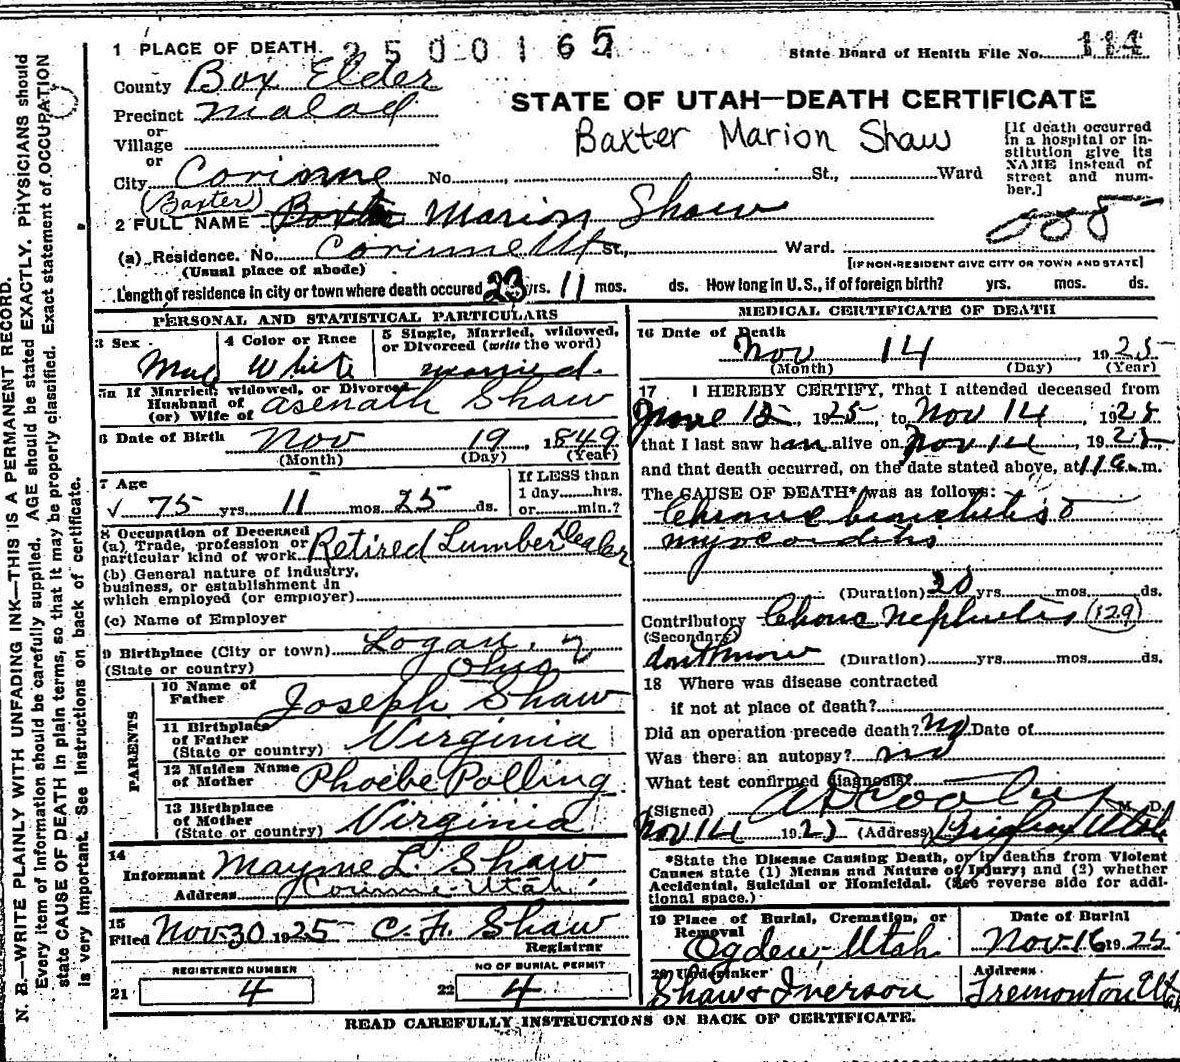 1 PLACE OF DEATH. 2500165
State Board of Health File No. 114
County Box Elder
Precinct Malad
STATE OF UTAH—DEATH CERTIFICATE
or
Village
Baxter Marion Shaw
[If death occurred in a hospital or institution give its NAME instead of street and number.]
or
City Corinne No. St., Ward
(Baxter)
2 FULL NAME Marion Shaw
(a) Residence. No. Corinne Ut St., Ward.
(Usual place of abode)
[IF NON-RESIDENT GIVE CITY OR TOWN AND STATE]
Length of residence in city or town where death occured 23 yrs. 11 mos. ds. How long in U.S., if of foreign birth? yrs. mos. ds.
PERSONAL AND STATISTICAL PARTICULARS
3 Sex
4 Color or Race White
5 Single, Married, widowed, or Divorced (write the word)
married.
5a If Married, widowed, or Divorced
Husband of
(or) Wife of Asenath Shaw
6 Date of Birth Nov 19, 1849
(Month) (Day) (Year)
7 Age
75 yrs. 11 mos. 25 ds.
If LESS than
1 day hrs.
or min.?
8 Occupation of Deceased
(a) Trade, profession or
particular kind of work Retired Lumber Dealer
(b) General nature of industry,
business, or establishment in
which employed (or employer)
(c) Name of Employer
9 Birthplace (City or town) Logan,
(State or country) Ohio
PARENTS
10 Name of
Father Joseph Shaw
11 Birthplace
of Father
(State or country) Virginia
12 Maiden Name
of Mother Phoebe Polling
13 Birthplace
of Mother
(State or country) Virginia
14
Informant Mayme L. Shaw
Address Corinne Utah
15
Filed Nov 30 1925 C. F. Shaw
Registrar
REGISTERED NUMBER
21 4
NO OF BURIAL PERMIT
22 4
MEDICAL CERTIFICATE OF DEATH
16 Date of Death
Nov 14, 1925
(Month) (Day) (Year)
17 I HEREBY CERTIFY, That I attended deceased from
June 12, 1925, to Nov 14, 1925
that I last saw h alive on Nov 14, 1925
and that death occurred, on the date stated above, at 11 a.m.
The CAUSE OF DEATH* was as follows:
Chronic bronchitis
myocarditis
(Duration) 20 yrs. mos. ds.
Contributory Chronic Nephritis (129)
(Secondary)
dont know (Duration) yrs. mos. ds.
18 Where was disease contracted
if not at place of death?
Did an operation precede death? no Date of
Was there an autopsy? no
What test confirmed diagnosis?
(Signed) M. D.
Nov 14 1925 (Address) Utah
*State the Disease Causing Death, or in deaths from Violent
Causes state (1) Means and Nature of Injury; and (2) whether
Accidental, Suicidal or Homicidal. (See reverse side for addi-
tional space.)
19 Place of Burial, Cremation, or
Removal
Ogden, Utah
Date of Burial
Nov. 16 1925
20 Undertaker
Shaw & Iverson
Address
Tremonton Utah
READ CAREFULLY INSTRUCTIONS ON BACK OF CERTIFICATE.
N. B.—WRITE PLAINLY WITH UNFADING INK—THIS IS A PERMANENT RECORD.
Every item of information should be carefully supplied. AGE should be stated EXACTLY. PHYSICIANS should
state CAUSE OF DEATH in plain terms, so that it may be properly classified. Exact statement of OCCUPATION
is very important. See instructions on back of certificate.